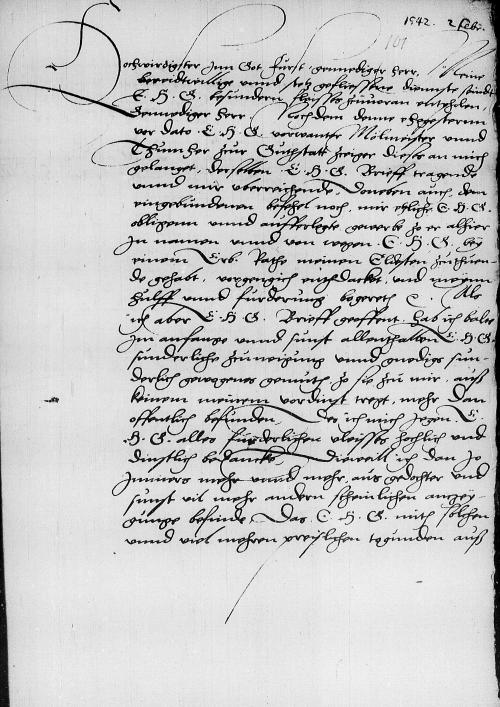 1542. 2 Febr.
101
Hochwirdigster Inn Got Furst, gennediger herr, Meine
bereidtwillige unnd stetz geflissene diennste sеindt
E. H. G. besundern fleisses zuuoran entpholen,
Gennediger herr, Noch dem denne ehegesternn
vor dato E. H. G. verwanter Molmeister unnd
Thumher zur Guthstatt zeiger diesses an mich
gelanget, derselben E. H. G. Brieff tragende
unnd mir uberreichende, doneben auch, dem
eingebundenen befehel noch, mir etzliche E. H. G.
obligenn unnd aufferlegte gewerbe so er alhier
In namen unnd von wegen E. H. G. bey
einem Erb. Rathe meinen Eldesten zuthuen-
de gehabt, vorgengich entdackt, und meynn
hulff unnd furderung begereth etc. Als
ich aber E. H. G. Brieff geoffent, hab ich balt
Im anfange unnd sunst allenthalben E. H. G.
sunderliche zuneigung unnd gnedigs sun-
derlich gewogenes gemuth so sie zu mir, auß
keinem meinem vordinst tregt, mehr dan
offentlich befunden, Des ich mich jegen E.
H. G. alles furderlichen vleisses hochlich und
dinstlich bedancke, Dieweill ich dan Jo
Immers mehr unnd mehr, aus gedochter und
sunst vil mehr andern scheinlichen anzei-
gunge befinde, Das E. H. G. mith solchen
unnd viel mehren preyslichen tugunden auß